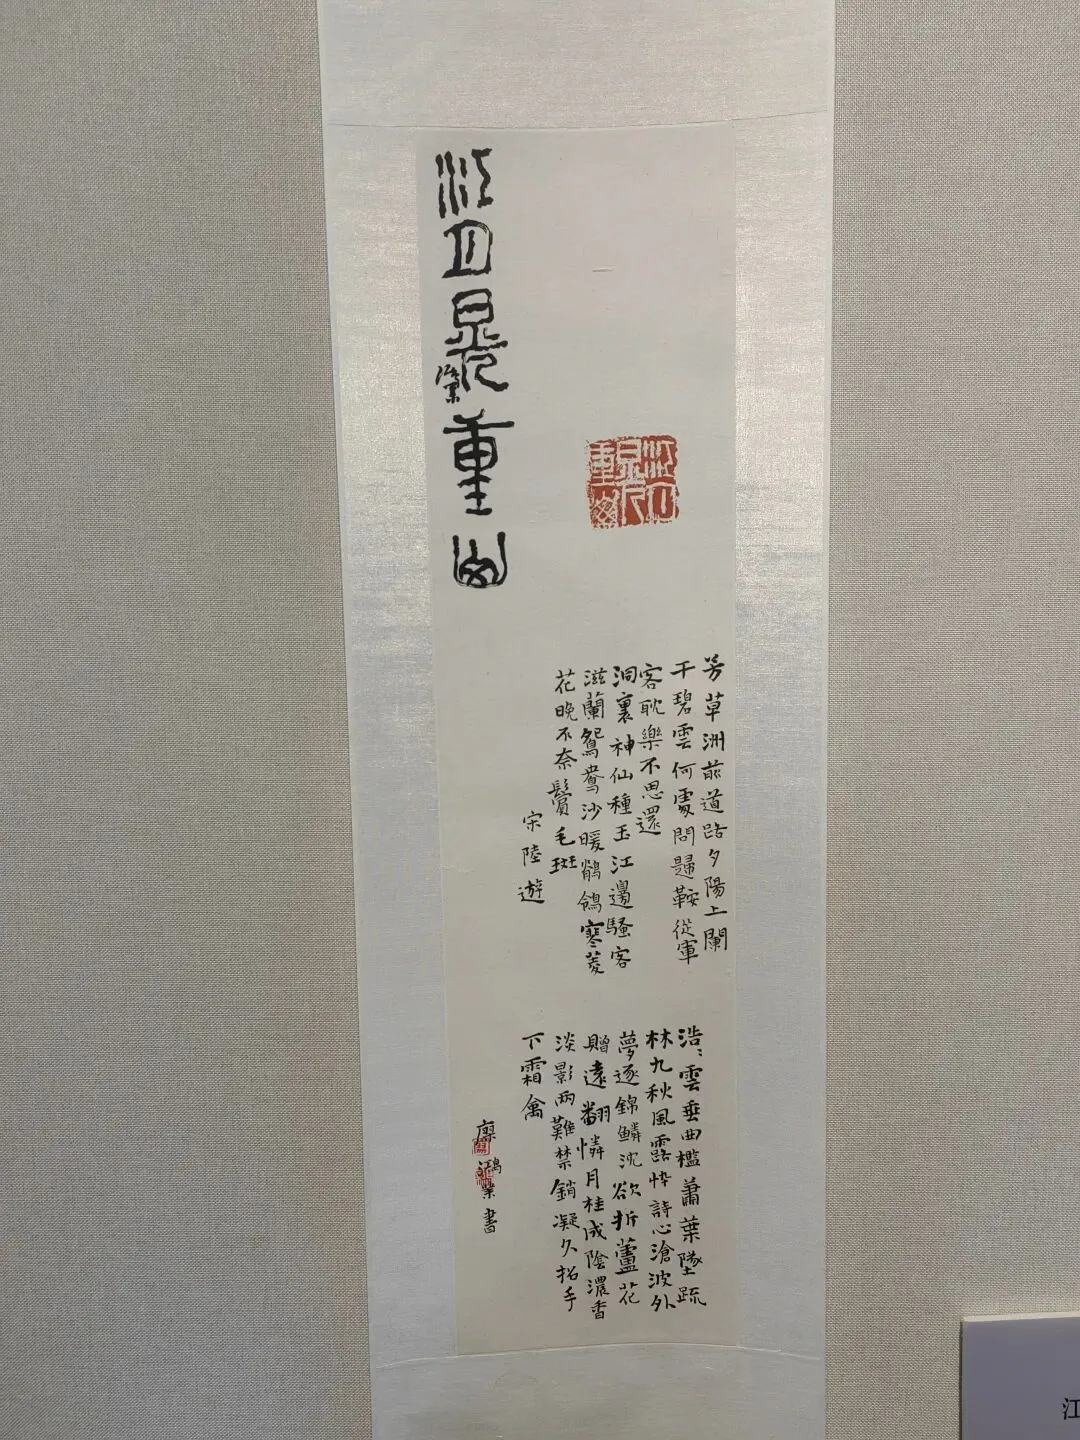 江月晃重山
江月晃重山
芳草洲前道路夕陽上闌
干碧雲何處問歸鞍從軍
客耽樂不思還
洞裏神仙種玉江邊騷客
滋蘭鴛鴦沙暖鶺鴒寒菱
花晚不奈鬢毛斑
宋陸遊
浩〻雲垂曲檻蕭葉墜疏
林九秋風露忰詩心滄波外
夢逐錦鱗沈欲折蘆花
贈遠翻憐月桂成陰濃香
淡影兩難禁銷凝久招手
下霜禽
鴻業書
江